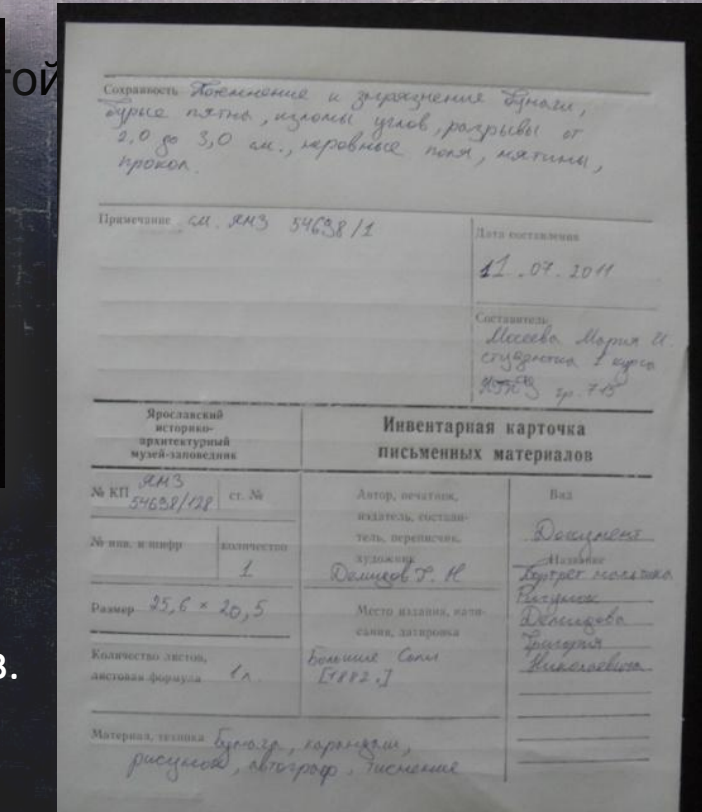 той
Сохранность Потемнение и загрязнение бумаги,
бурые пятна, изломы углов, разрывы от
2,0 до 3,0 см., неровные поля, мятины,
прокол.
Примечание см. ЯМЗ 54698/1
Дата составления
11.07.2011
Составитель
Мария И.
студентка 1 курса
гр. 715
Ярославский
историко-
архитектурный
музей-заповедник
Инвентарная карточка
письменных материалов
№ КП ЯМЗ
54698/128
ст. №
№ инв. и шифр
количество
1
Размер 25,6 × 20,5
Количество листов,
листовая формула 1 л.
Автор, печатник,
издатель, состави-
тель, переписчик,
художник
Демидов Г. Н
Место издания, напи-
сания, датировка
Большие Соли
[1882 г.]
Вид
Документ
Название
Портрет мальчика
Рисунок
Демидова
Григория
Николаевича
Материал, техника бумага, карандаш,
рисунок, автограф, тиснение
в.